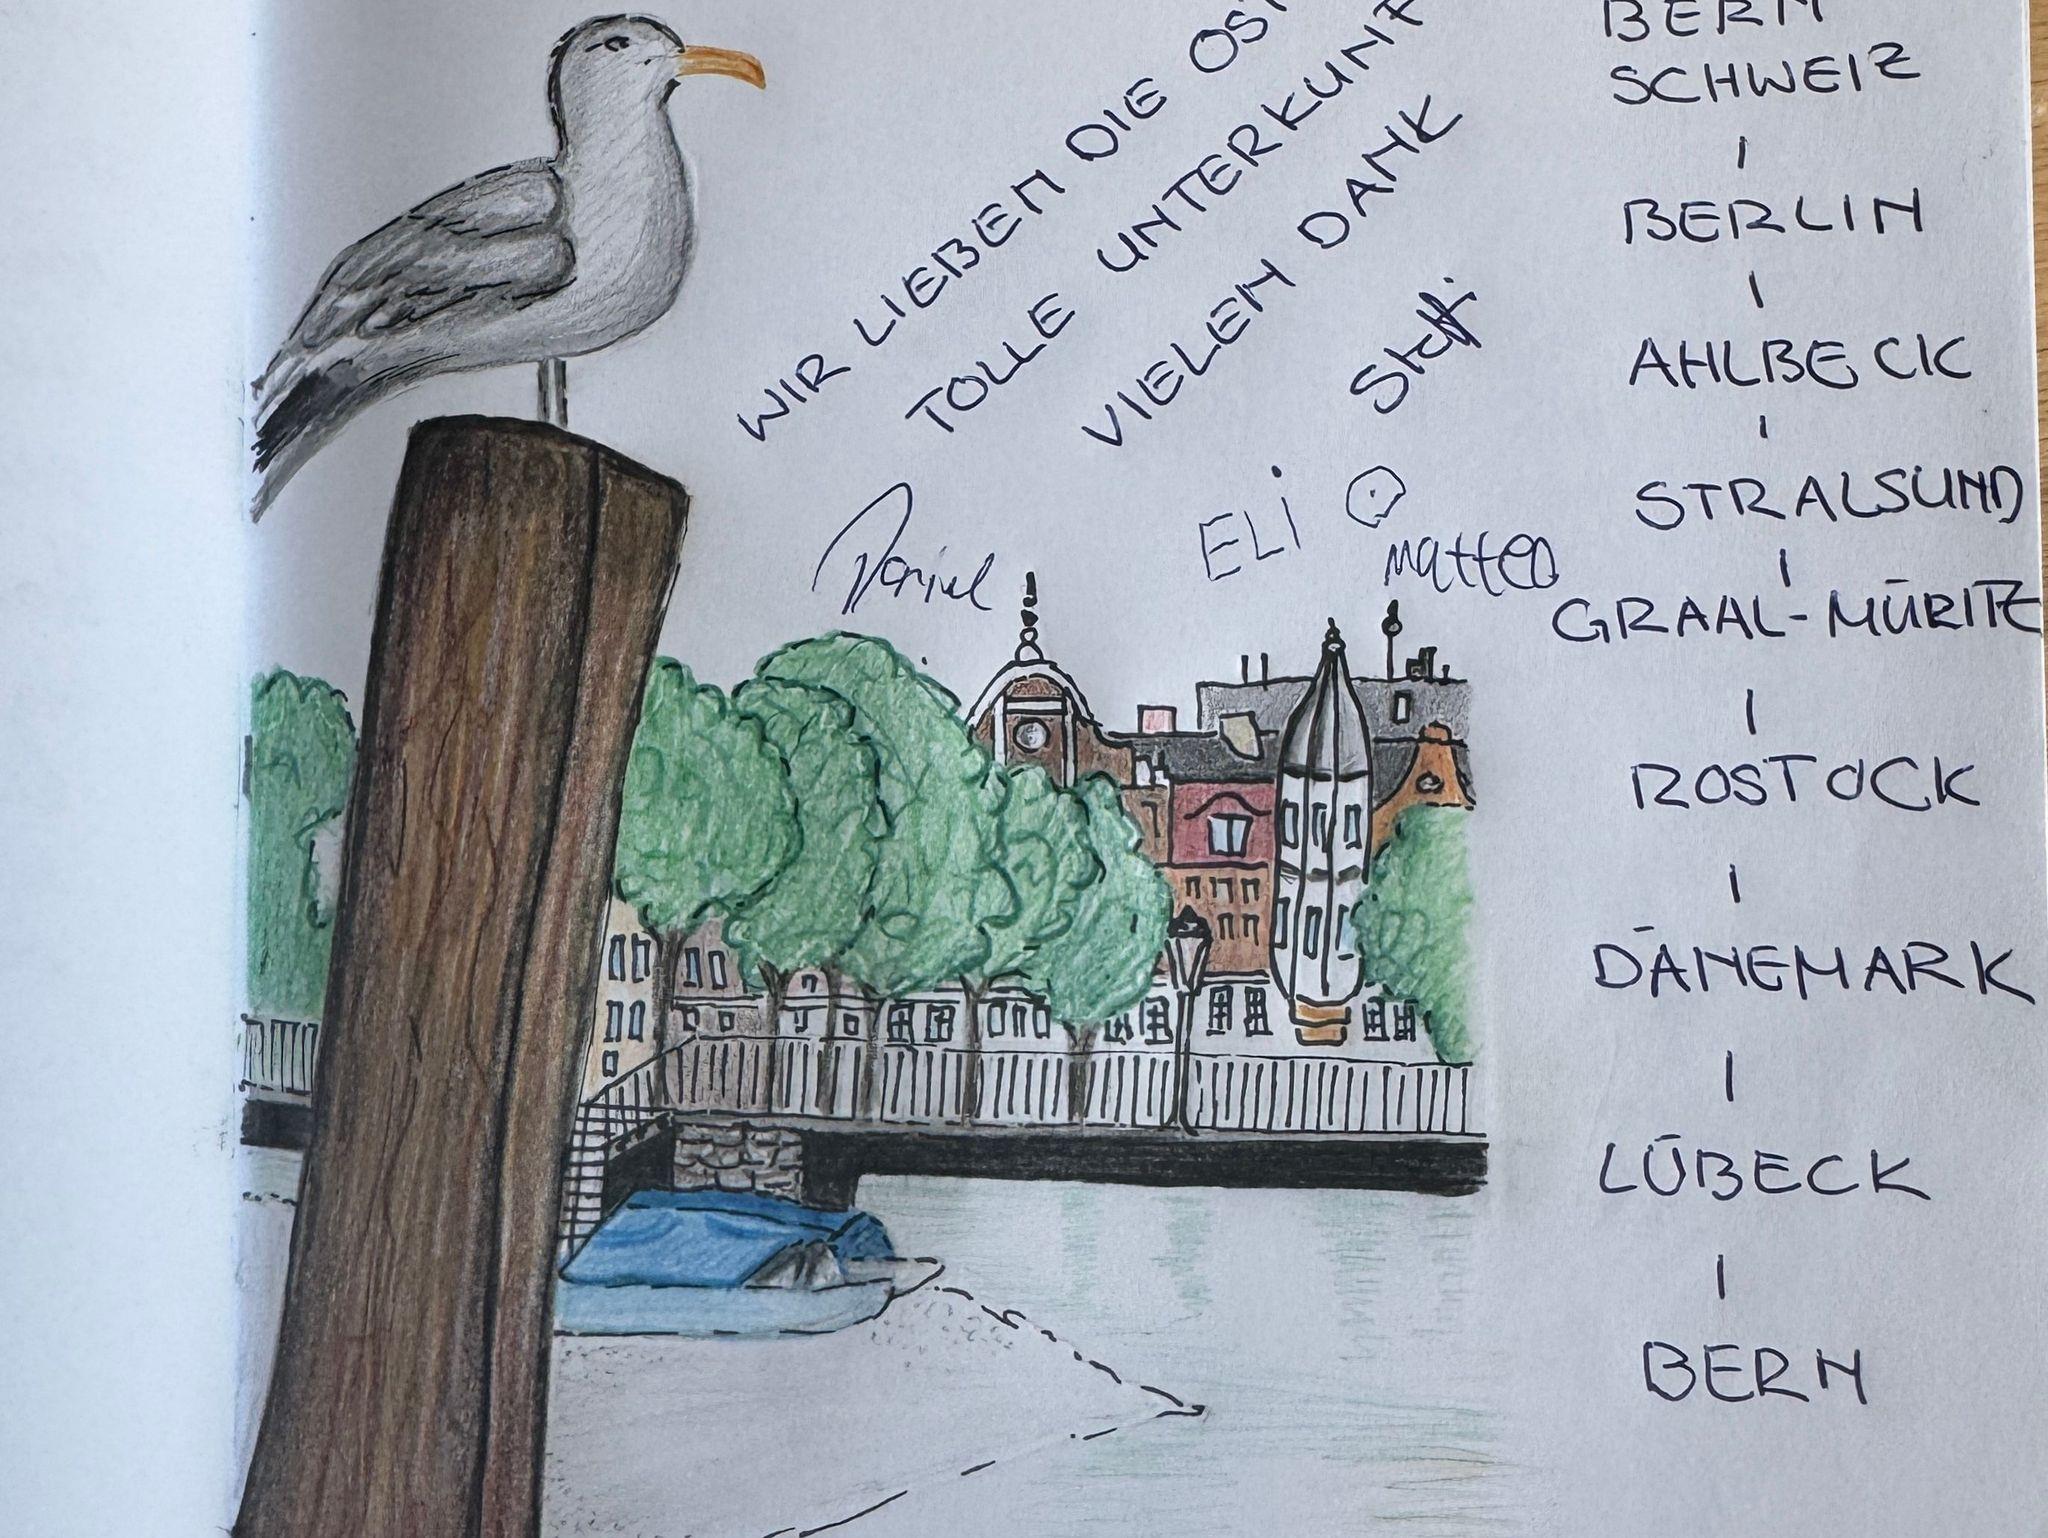 WIR LIEBEN DIE OST
TOLLE UNTERKUNF
VIELEN DANK
Steffi
Daniel
ELi
matteo
BERN
SCHWEIZ
BERLIN
AHLBECK
STRALSUND
GRAAL-MÜRITZ
ROSTOCK
DÄNEMARK
LÜBECK
BERN